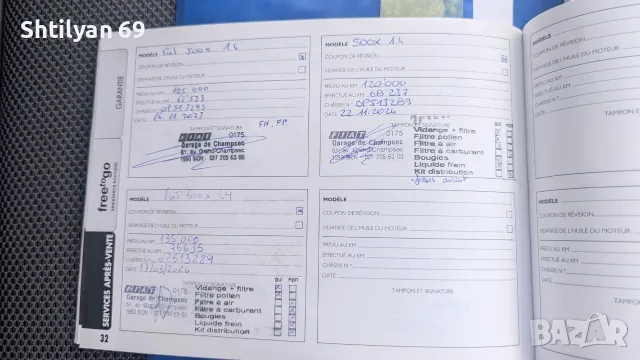 Shtilyan 69
GARANTIE
free to go
SERVICES APRÈS-VENTE
32
MODÈLE Fiat 500x 1.4
COUPON DE RÉVISION
VIDANGE DE L'HUILE DU MOTEUR
PRÉVU AU KM 105 000
EFFECTUÉ AU KM
CHÂSSIS N° 0P513289
DATE 16.11.2023
TAMPON ET SIGNATURE
FH, FP
FIAT 0175
Garage de Champsec
1950 SION 027 205 63 00
MODÈLE 500X 1.4
COUPON DE RÉVISION
VIDANGE DE L'HUILE DU MOTEUR
PRÉVU AU KM 120'000
EFFECTUÉ AU KM 68'237
CHÂSSIS N° 0P513289
DATE 22.11.2024
FIAT 0175
Garage de Champsec
1950 SION 027 205 63 00
Vidange + filtre
Filtre pollen
Filtre à air
Filtre à carburant
Bougies
Liquide frein
Kit distribution
MODÈLE Fiat 500x 1.4
COUPON DE RÉVISION
VIDANGE DE L'HUILE DU MOTEUR
PRÉVU AU KM 135 000
EFFECTUÉ AU KM 75635
CHÂSSIS N°
DATE
TAMPON ET SIGNATURE
OUI NON
FIAT 0175
Garage de Champsec
1950 SION
Vidange + filtre
Filtre pollen
Filtre à air
Filtre à carburant
Bougies
Liquide frein
Kit distribution
MODÈLE
COUPON DE RÉVISION
VIDANGE DE L'HUILE DU MOTEUR
PRÉVU AU KM
EFFECTUÉ AU KM
CHÂSSIS N°
DATE
TAMPON ET SIGNATURE
MODÈLE
COUPON DE RÉVISION
VIDANGE DE L'HUILE
PRÉVU AU KM
EFFECTUÉ AU KM
CHÂSSIS N°
DATE
MODÈLE
COUPON DE RÉVISION
VIDANGE DE L'HUILE DU
PRÉVU AU KM
EFFECTUÉ AU KM
CHÂSSIS N°
DATE
bazar.bg